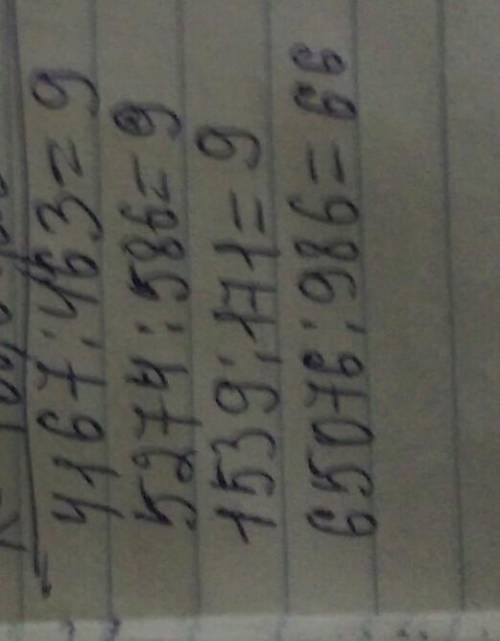 4167:463=9
5274:586=9
1539:171=9
65076:986=66